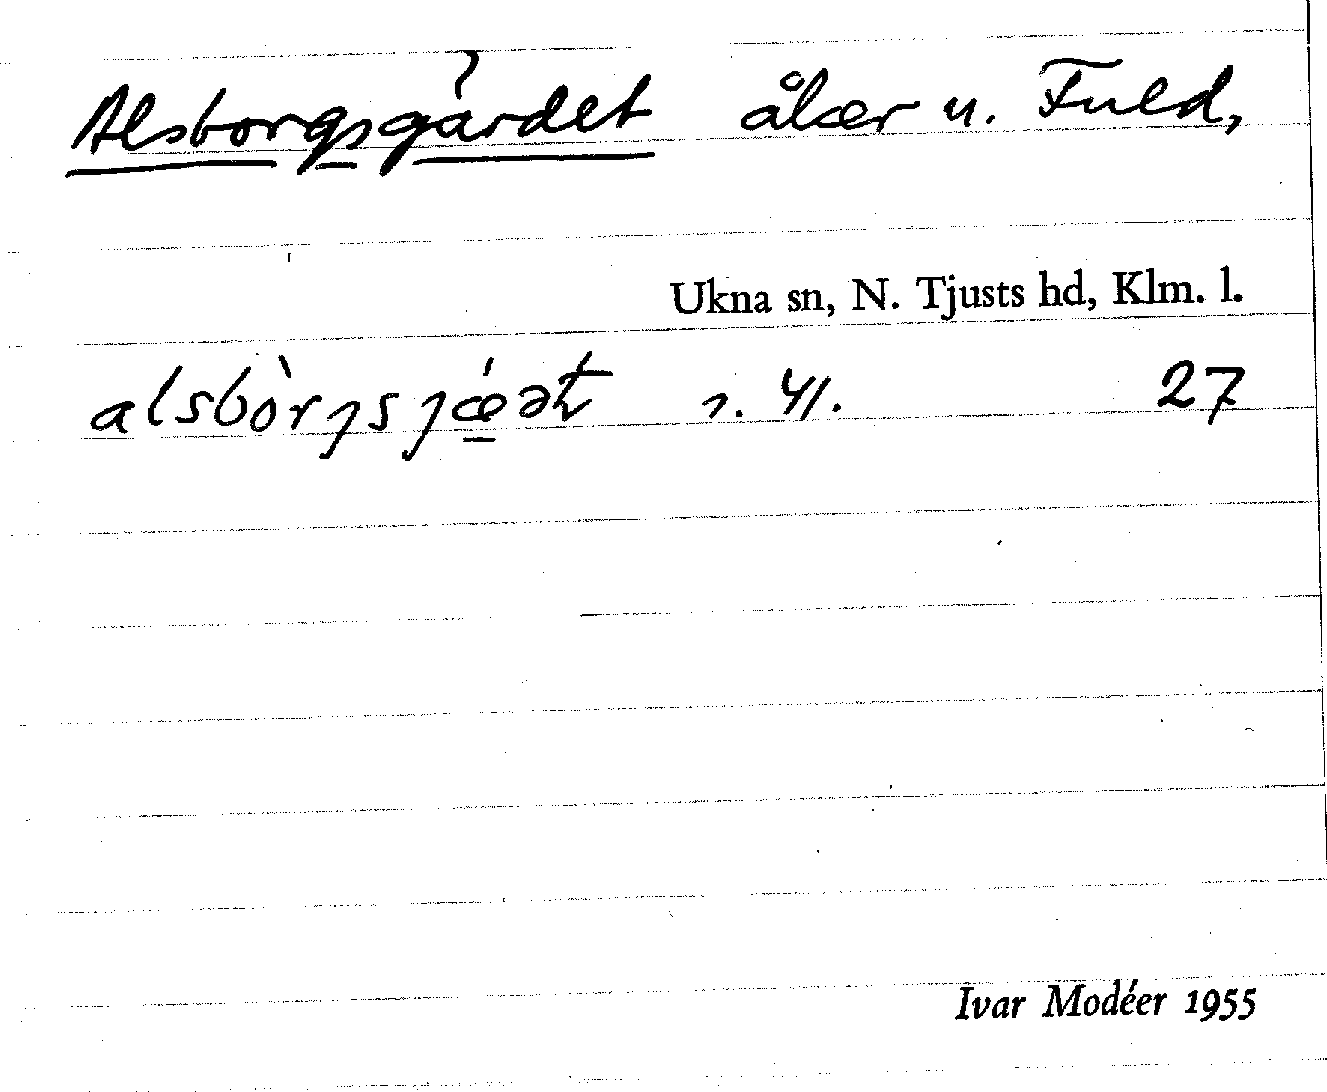 Alsborgsgärdet åker u. Fuld,
Ukna sn, N. Tjusts hd, Klm. l.
27
Ivar Modéer 1955